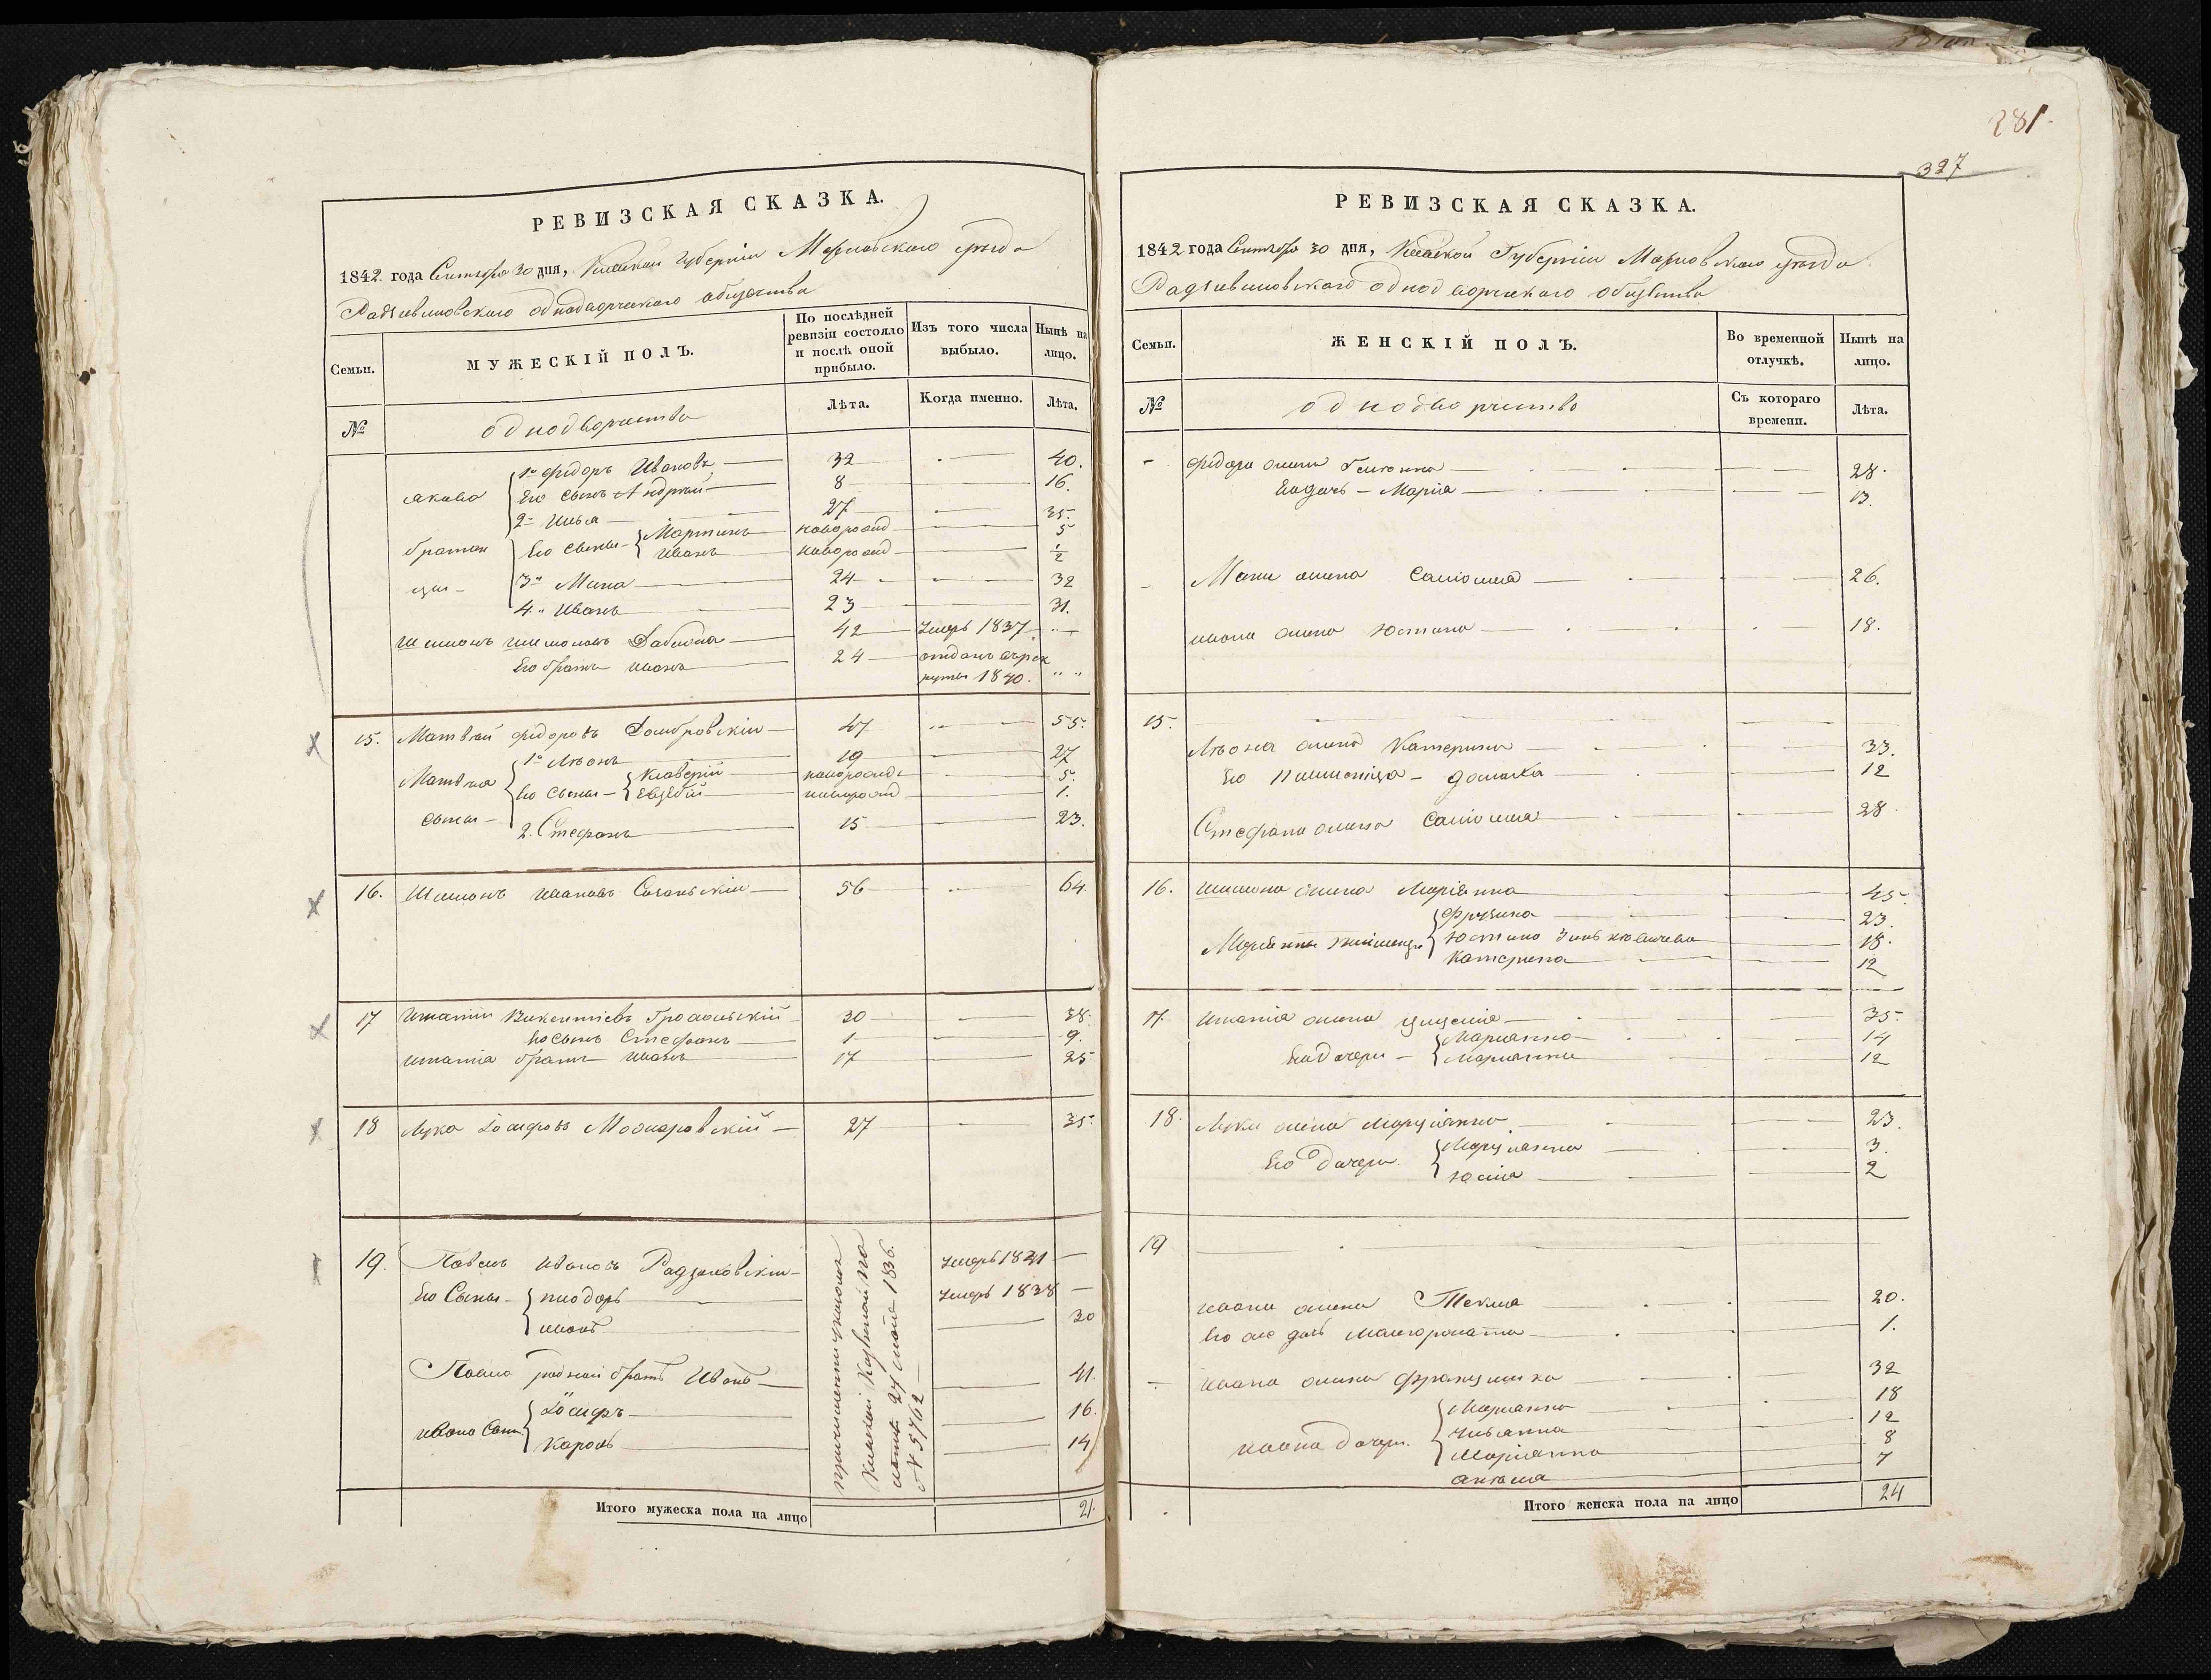 РЕВИЗСКАЯ СКАЗКА.
1842 года Сентября 30 дня, Киевской Губерніи Махновского уѣзда
Радзивиловского однодворческого общества
Семьи.
МУЖЕСКІЙ ПОЛЪ.
По послѣдней ревизіи состояло и послѣ оной прибыло.
Изъ того числа выбыло.
Нынѣ на лицо.
№
однодворчество
Лѣта.
Когда именно.
Лѣта.
Якова 1й Фидоръ Ивановъ 32 40.
Его сынъ Андрѣй 8 16.
2й Илья 27 35.
братья Его сыны Мартинъ новорожд 5
Иванъ новорожд ½
3й Мина 24 32
4й Иванъ 23 31.
Шимонъ Шимоновъ 42 Умеръ 1837
Его братъ Иванъ 24 отданъ въ рек
руты 1840.
15. Матвѣй Фидоровъ Домбровскій 47 55.
Матвѣя 1й Лѣонъ 19 27
Его сыны Ксаверій новорожд 5.
новорожд 1.
сыны 2. Стефанъ 15 23.
16. Шимонъ Ивановъ 56 64.
17 Игнатій Викентіевъ 30 38.
Его сынъ Стефанъ 1 9.
Игнатія братъ Иванъ 17 25
18 Лука Іосифовъ 27 35
19. Павелъ Ивановъ Умеръ 1841
Его Сыны Умеръ 1838
Иванъ 30
Павла родный братъ Иванъ 41.
Ивана Сыны Іосифъ 16.
Кароль 14
причислены указомъ
Киевской Казенной Па
латы 27 1836.
№ 5762
Итого мужеска пола на лицо 21.
281.
327
РЕВИЗСКАЯ СКАЗКА.
1842 года Сентября 30 дня, Киевской Губерніи Махновского уѣзда
Радзивиловского однодворческого общества
Семьи.
ЖЕНСКІЙ ПОЛЪ.
Во временной отлучкѣ.
Нынѣ на лицо.
№
однодворчество
Съ котораго времени.
Лѣта.
Фидора жена 28.
Его дочь Марія 13.
Мины жена Саломея 26.
Ивана жена Юстина 18.
15.
Лѣона жена Катерина 33.
Его 12
Стефана жена Саломея 28
16. Шимона жена Маріянна 45
23
Маріянны Юстина 18.
Катерина 12
17. Игнатія жена 35.
Его дочери Марианна 14
Марианна 12
18. Луки жена Марціянна 23.
Его дочери Марцианна 3.
Юлія 2
19
Ивана жена Текля 20.
Его же дочь 1.
Ивана жена Францишка 32
Марианна 18
Ивана дочери Юлианна 12
Маріянна 8
7
Итого женска пола на лицо 24